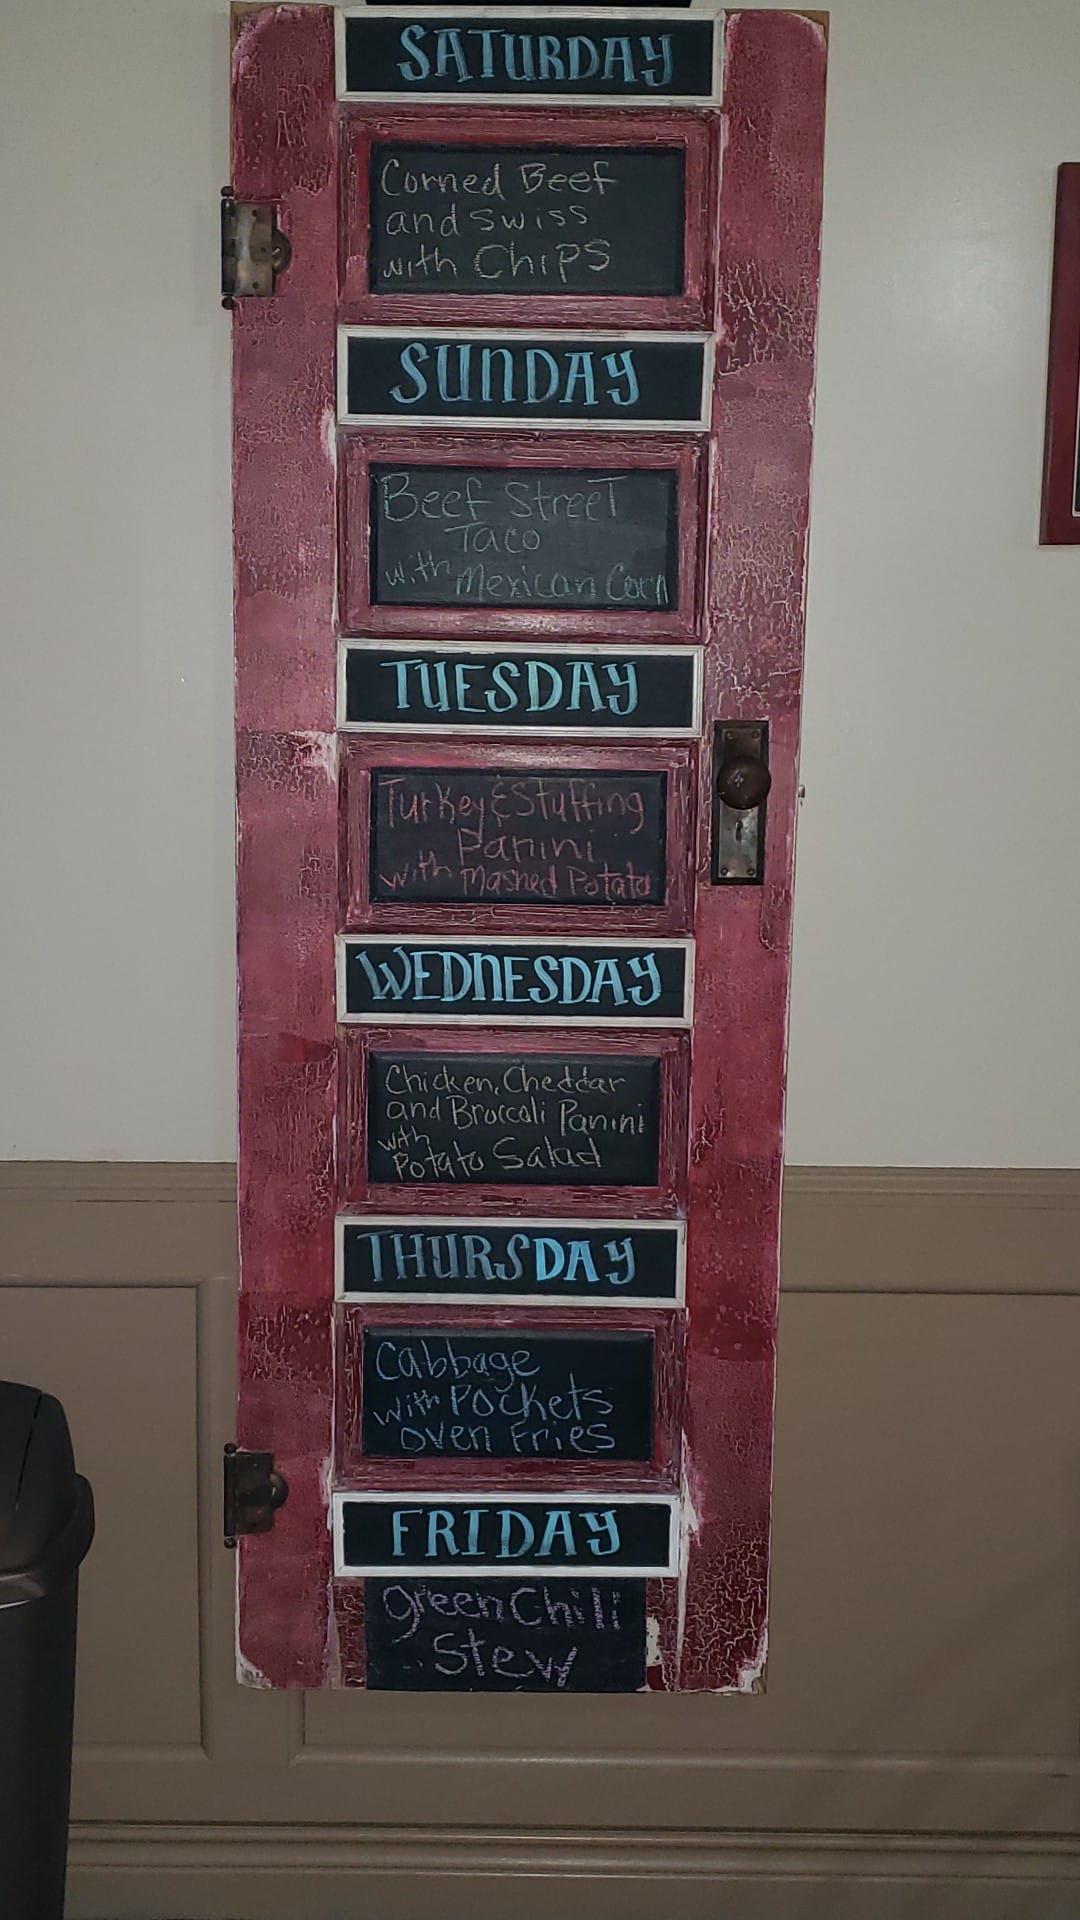 SATURDAY
Corned Beef
and swiss
with Chips
SUNDAY
Beef Street
Taco
with Mexican Corn
TUESDAY
Turkey & Stuffing
Panini
with Mashed Potato
WEDNESDAY
Chicken, Cheddar
and Broccoli Panini
with
Potato Salad
THURSDAY
Cabbage
with Pockets
oven Fries
FRIDAY
green Chili
Stew